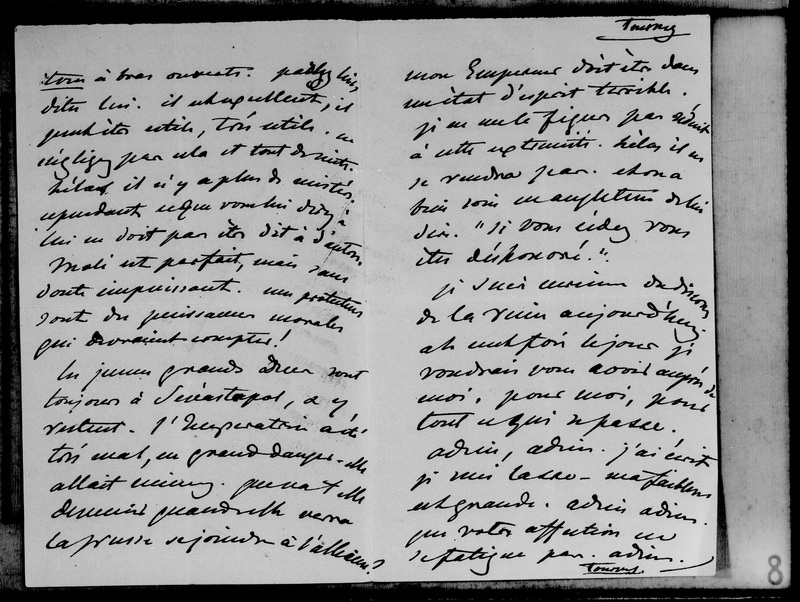 à bras ouverts. parlez lui,
dites lui. il est excellent, il
peut être utile, très utile. ne
négligez pas cela et tout de suite.
hélas, il n'y a plus de
cependant ce que vous lui direz à
lui ne doit pas être dit à d'autres.
Mali est parfait, mais sans
doute impuissant. mes protecteurs
sont des puissances morales
qui devraient compter!
les jeunes grands ducs sont
toujours à Sévastopol, et y
restent. l'Impératrice a été
très mal, en grand danger - elle
allait mieux. que va t elle
devenir quand elle verra
la prusse se joindre à l'alliance?
tournez
mon Empereur doit être dans
un état d'esprit terrible.
je ne me le figure pas réduit
à cette extrémité. hélas il ne
se rendra pas. et on a
bien soin en angleterre de lui
dire. "si vous cédez vous
êtes déshonoré."
je suis moins
de la reine aujourd'hui.
ah cent fois le jour je
voudrais vous avoir auprès de
moi, pour moi, pour
tout ce qui se passe.
adieu, adieu. j'ai écrit
je suis lasse - ma faiblesse
est grande. adieu adieu.
que votre affection ne
se fatigue pas. adieu.
tournez.
8